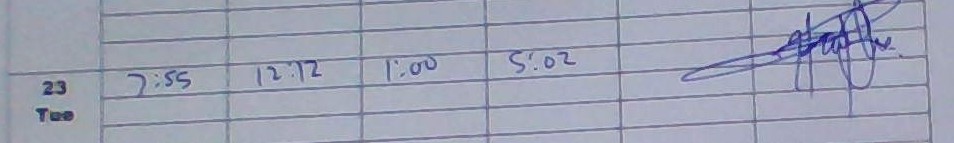 23 7:55 12:12 1:00 5:02
Tue